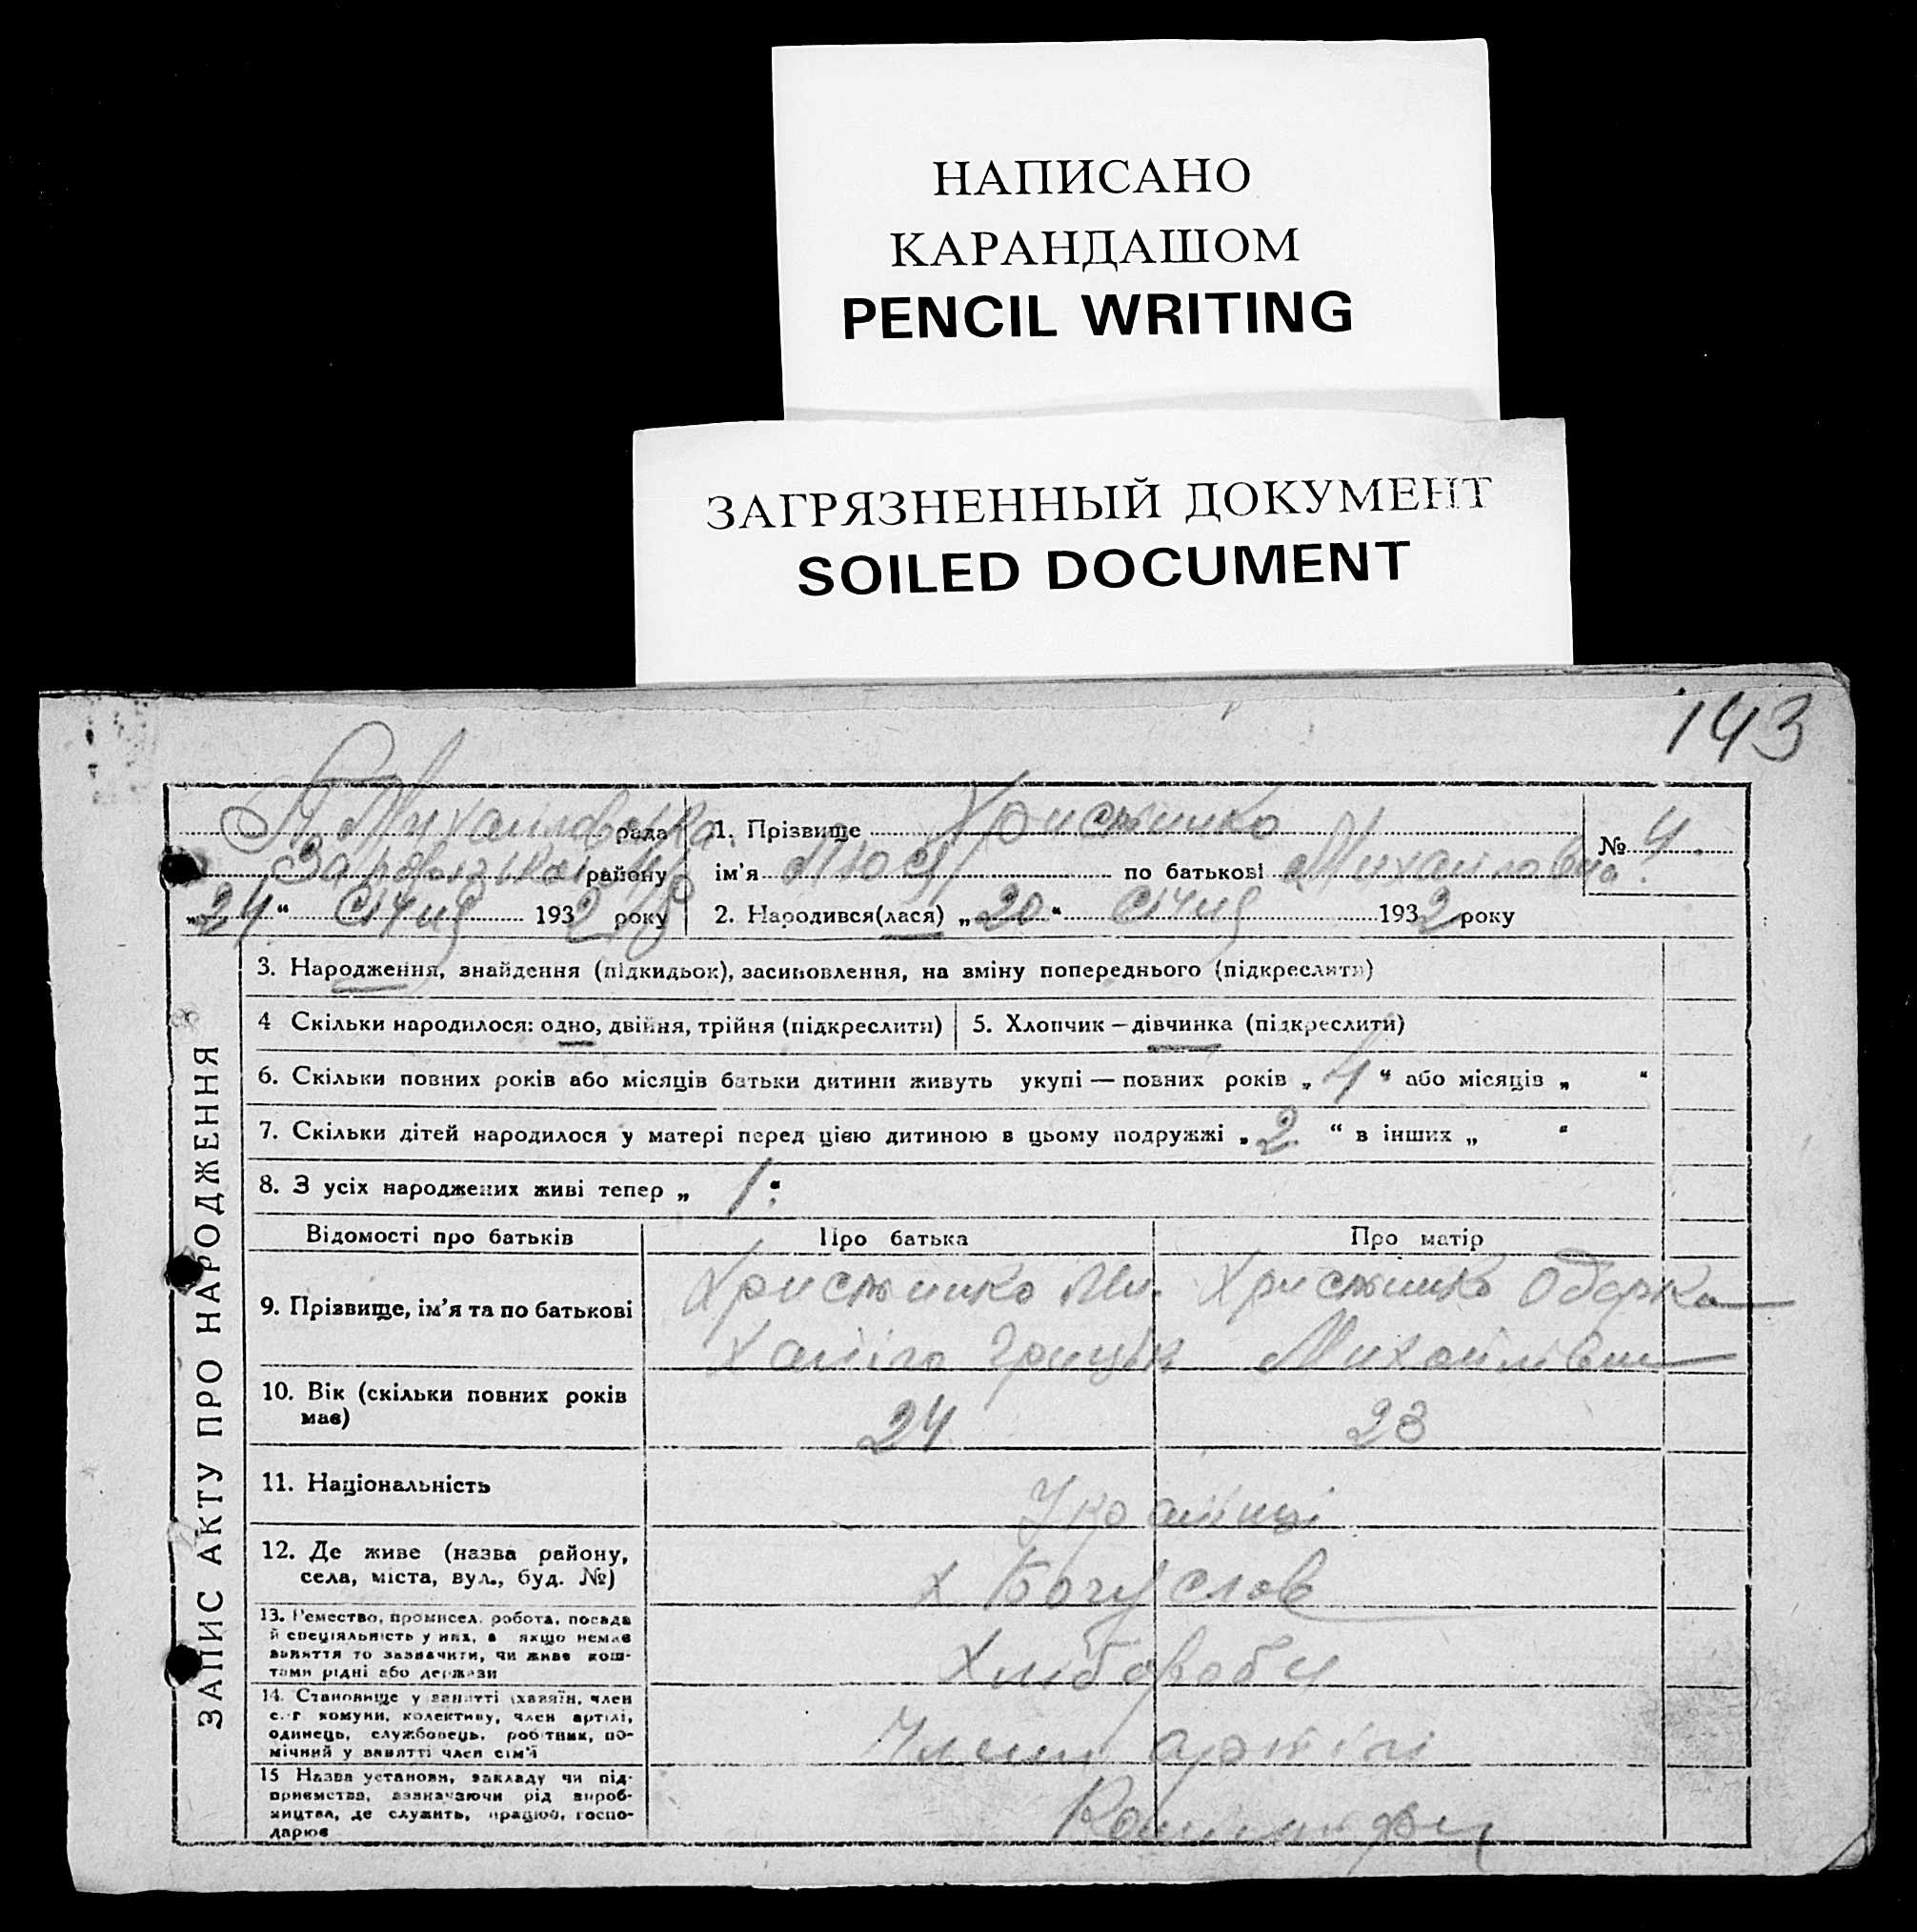 НАПИСАНО
КАРАНДАШОМ
PENCIL WRITING
ЗАГРЯЗНЕННЫЙ ДОКУМЕНТ
SOILED DOCUMENT
143
рада
району
„24“ січня 1932 року
1. Прізвище Христинко
ім'я по батькові Михайловна
№ 4.
2. Народився(лася) „20“ січня 1932 року
ЗАПИС АКТУ ПРО НАРОДЖЕННЯ
3. Народження, знайдення (підкидьок), засиновлення, на зміну попереднього (підкреслити)
4 Скільки народилося: одно, двійня, трійня (підкреслити)
5. Хлопчик – дівчинка (підкреслити)
6. Скільки повних років або місяців батьки дитини живуть укупі — повних років „4“ або місяців „ “
7. Скільки дітей народилося у матері перед цією дитиною в цьому подружжі „2“ в інших „ “
8. З усіх народжених живі тепер „1“
Відомості про батьків Про батька Про матір
9. Прізвище, ім'я та по батькові
Христинко Ми-
хайло Грицьк
Христинко Одарка
Михайлівна
10. Вік (скільки повних років
має)
24 23
11. Національність
Українці
12. Де живе (назва району,
села, міста, вул., буд. №)
х Богуслов
13. Ремество, промисел, робота, посада
й спеціяльність у них, а якщо немає
заняття то зазначити, чи живе кош-
тами рідні або держави
Хлібороби
14. Становище у занятті (хазяїн, член
с.-г комуни, колективу, член артілі,
одинець, службовець, робітник, по-
мічний у занятті член сім'ї
Члени артілі
15 Назва установи, закладу чи під-
приємства, зазначаючи рід вироб-
ництва, де служить, працює, госпо-
дарює